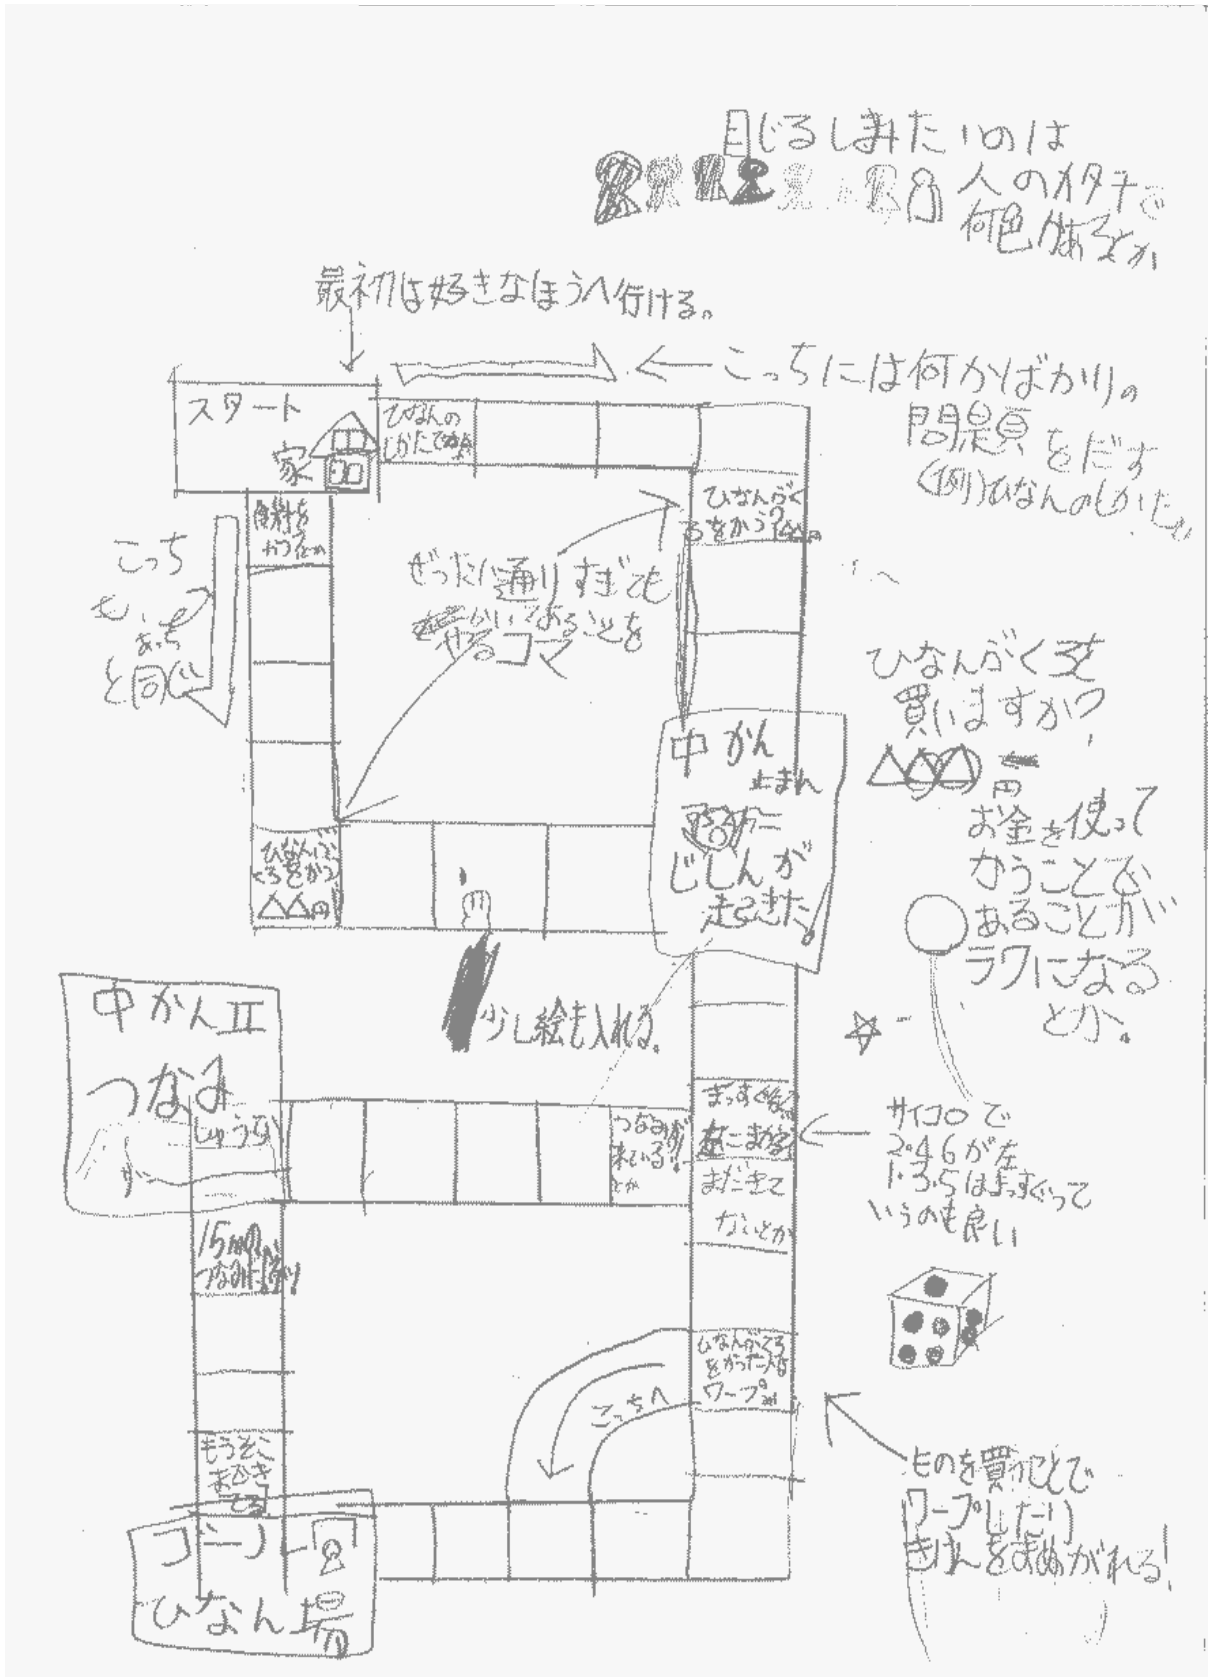 目じるしみたいのは
人のカタチで
何色かあるとか
最初は好きなほうへ行ける。
こっちには何かばかりの
問題をだす
(例)ひなんのしかた
スタート
家
ひなんの
しかたでか
ひなんぶく
ろをかう?△△円
こっち
も、
あっち
と同じ
ぜったい通りすぎても
かいてあることを
やるコマ
ひなんぶくろを
買いますか?
△△△
円
お金を使って
かうことで
あることが
ラクになる
とか。
中かん
止まれ
じしんが
起きた。
ひなんぶ
くろをかう
△△円
少し絵も入れる。
中かんII
つなみ
しゅうらい
つなみが
来ている!!
とか
まっすぐ後
左にまがる
まだきて
ないとか
サイコロで
2.4.6が左
1.3.5はまっすぐって
いうのも良い
15mの
つなみ
ひなんぶくろ
をかった人は
ワープ
こっちへ
ものを買うことで
ワープしたり
きけんをまぬがれる!
もうそこ
まできて
てる
ゴール
ひなん場